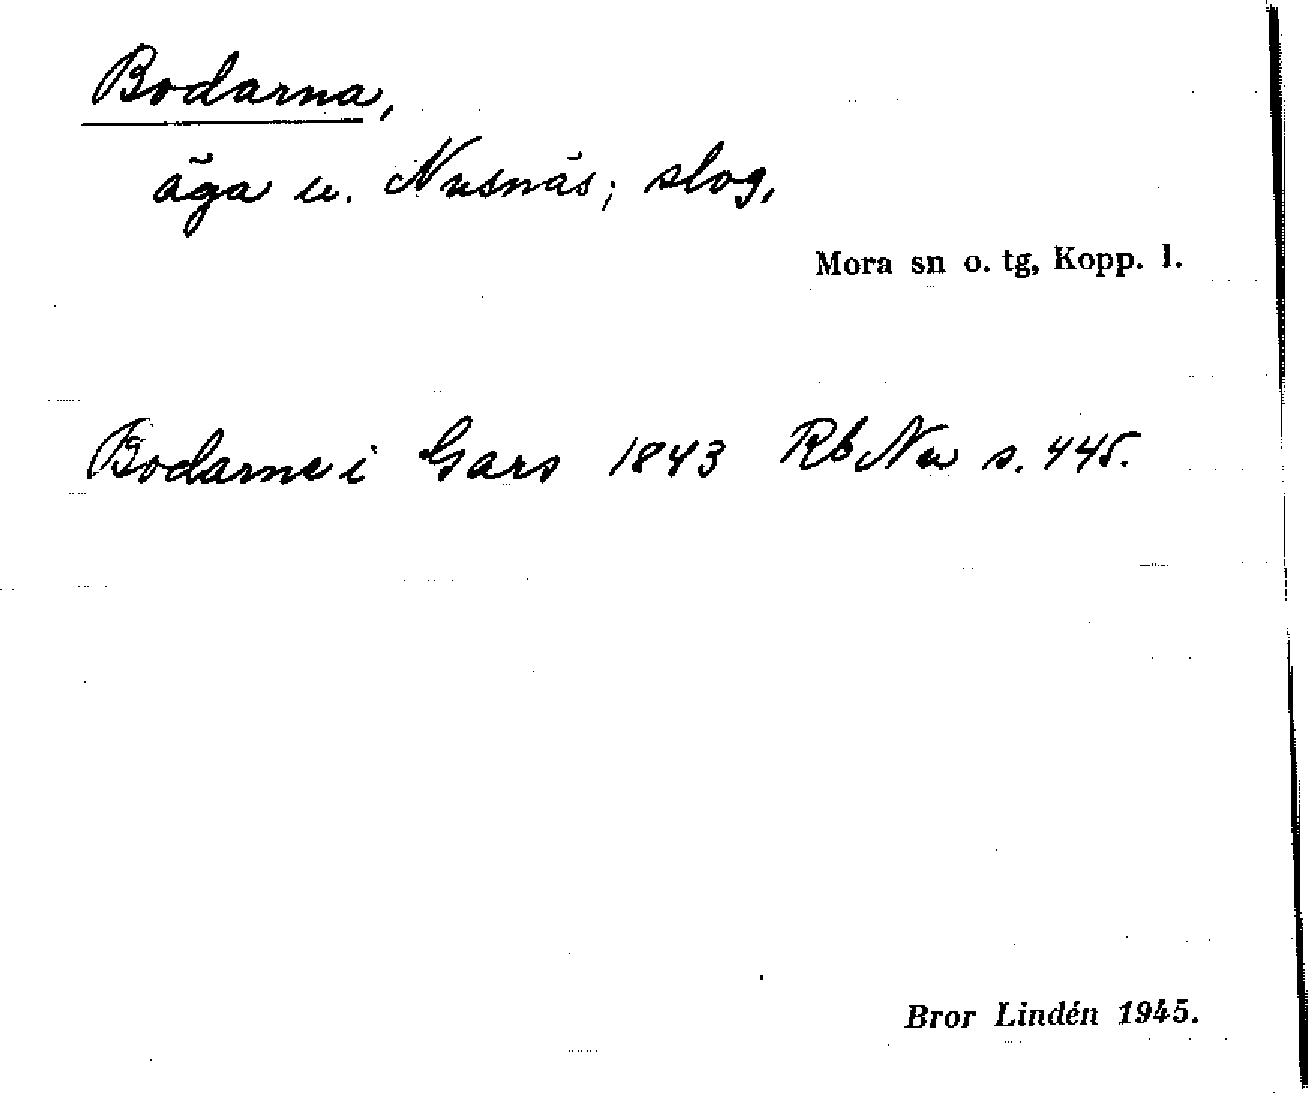 Bodarna,
äga u. Nusnäs; slog.
Mora sn o. tg, Kopp. l.
Bodarne i Gars 1843 Rb Nu s. 445.
Bror Lindén 1945.